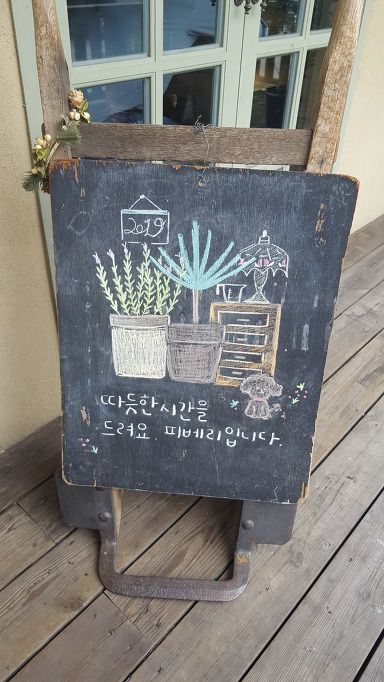 2019
따듯한 시간을
드려요. 피베리입니다.